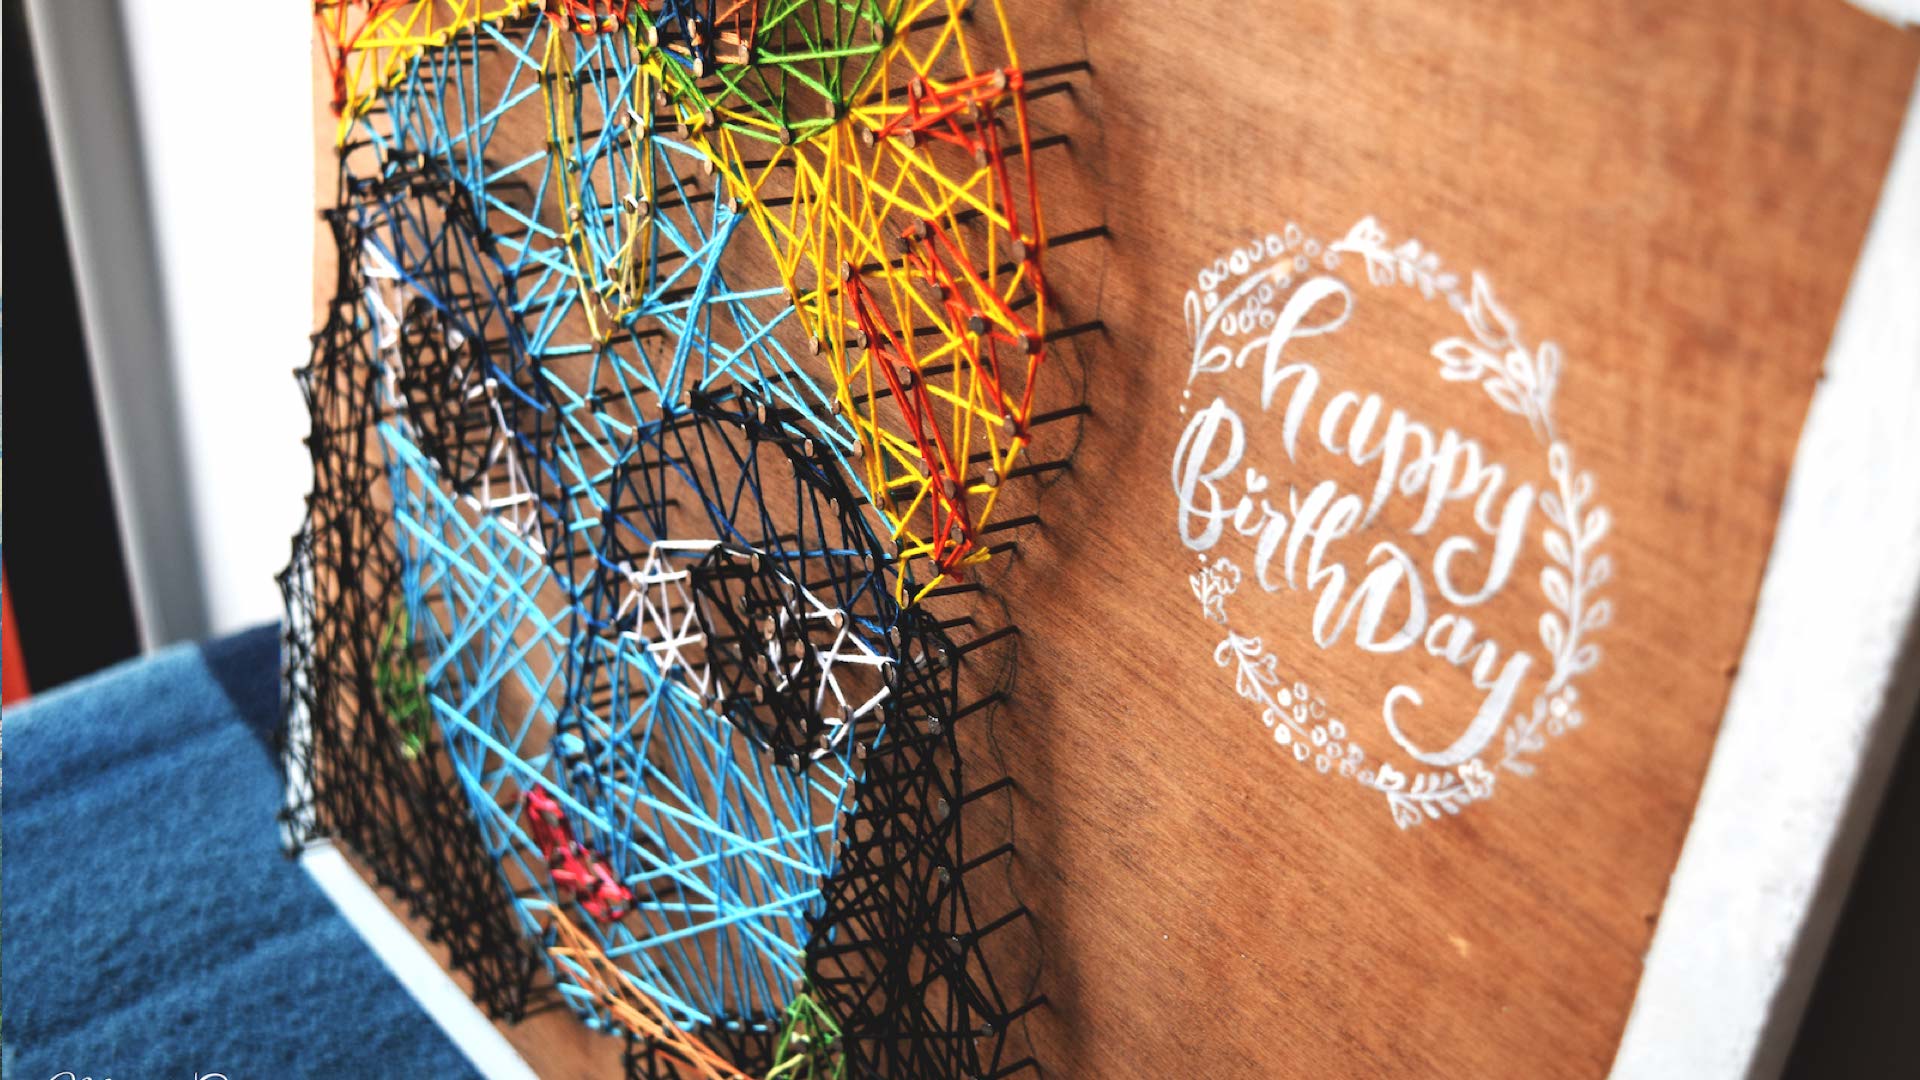 happy
BirthDay